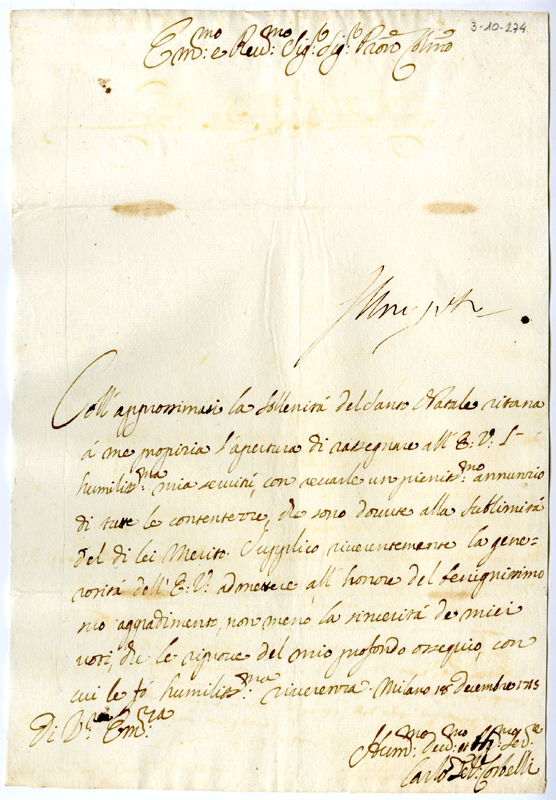 3-10-274
Em.mo e Reu.mo Sig.r Sig.r Pron.e Col.mo
Coll' approssimarsi la Sollenità del Santo Natale ritorna
à me propizia l'apertura di rassegnare all' E: V: l'
humiliss.ma mia seruitù, con recarle un pieniss.mo annunzio
di tutte le contentezze, che sono douute alla sublimità
del di lei Merito. Supplico riuerentemente la gene-
rosità dell' E: V: admettere all' honore del benignissimo
suo aggradimento, non meno la sincerità de miei
voti, che le riproue del mio profondo ossequio, con
cui le fò humiliss.ma riuerenza. Milano 18 Decembre 1715
Di V.ra Em.za
Hum.mo Deu.mo Ser.re
Carlo Corbelli